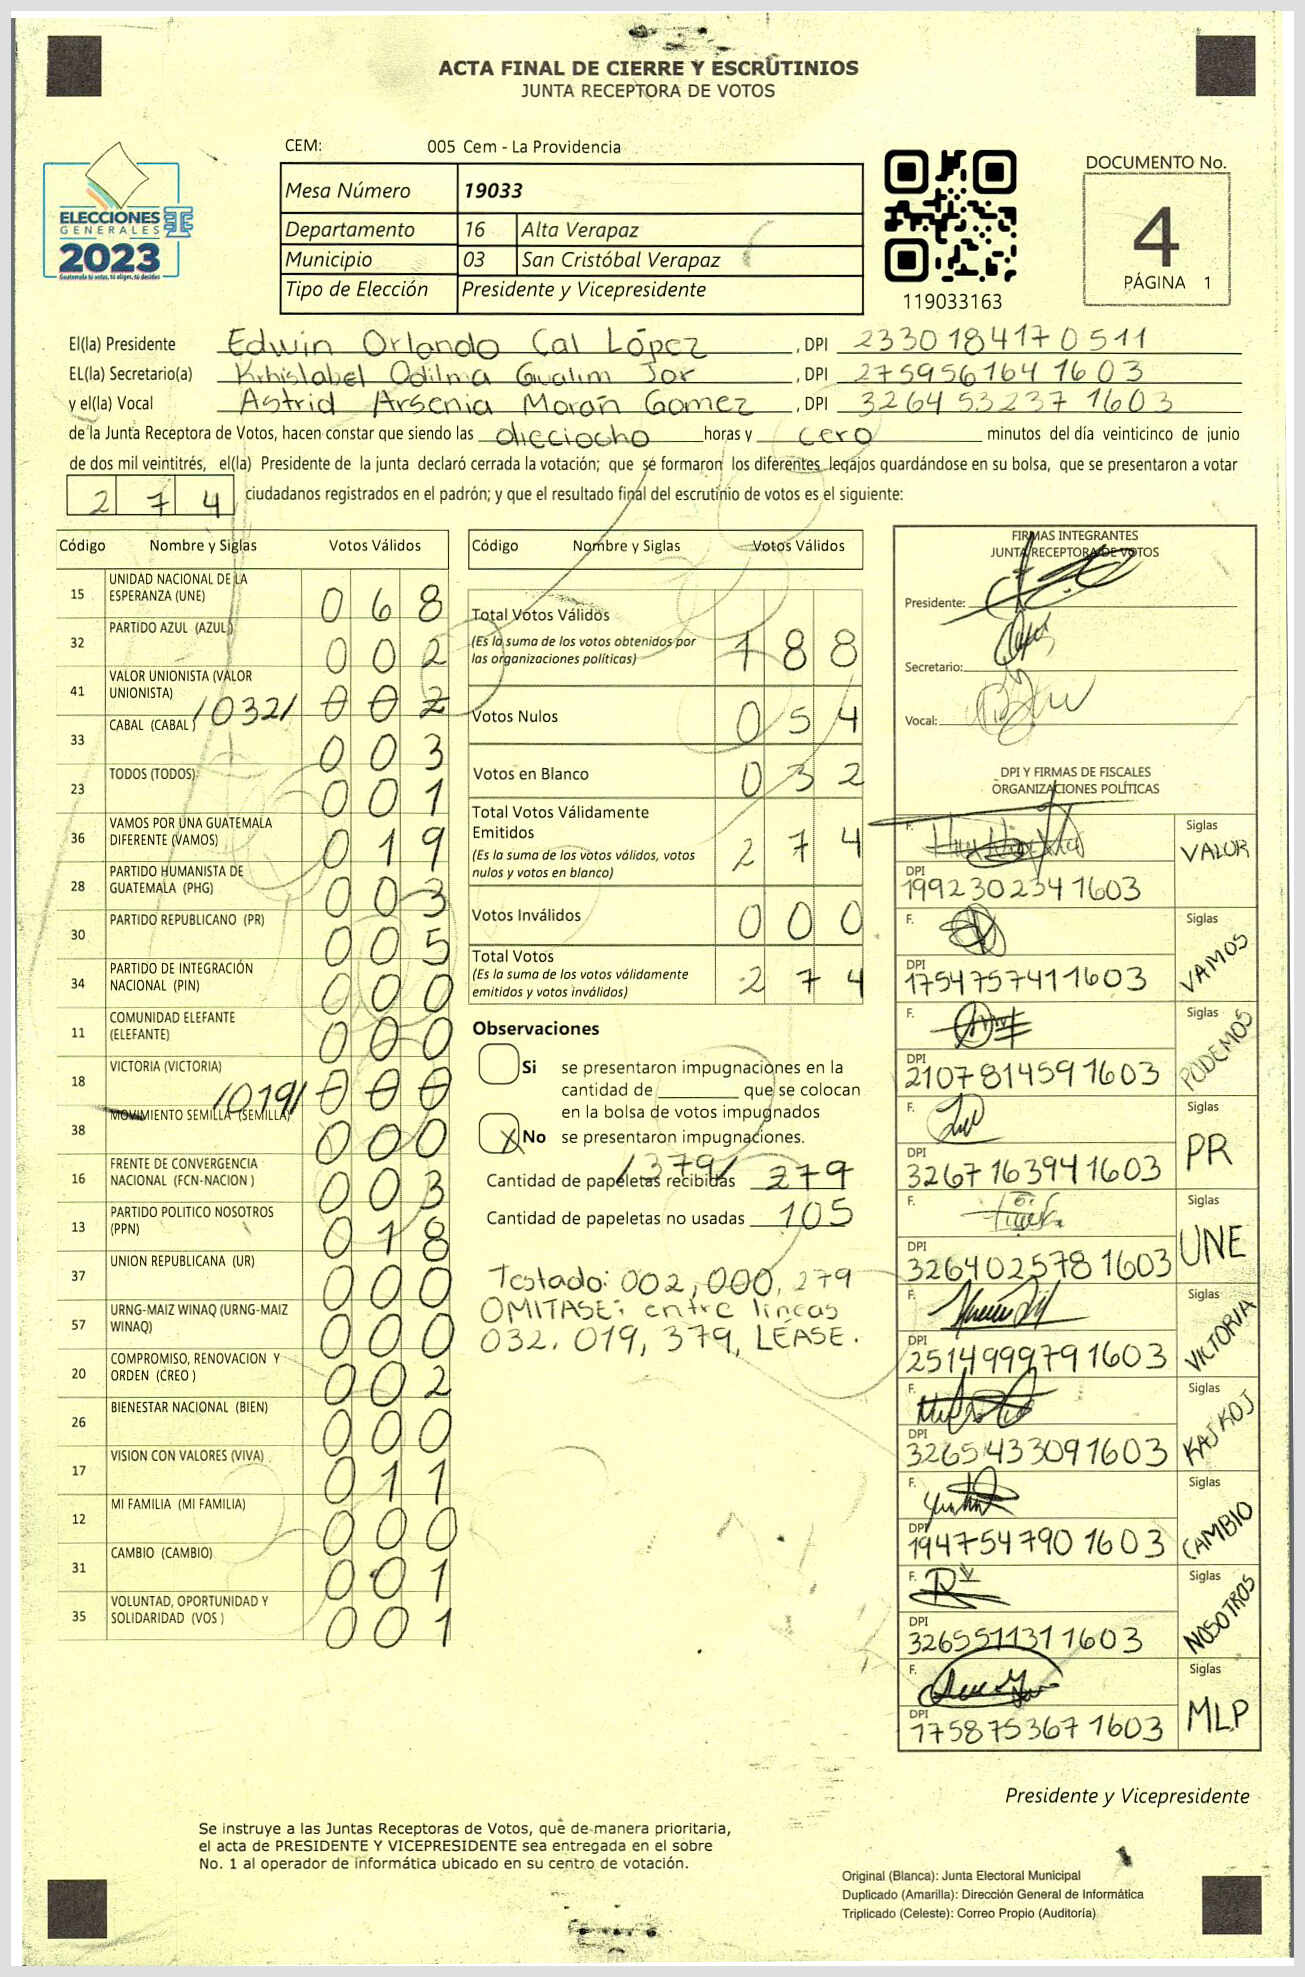 ACTA FINAL DE CIERRE Y ESCRUTINIOS
JUNTA RECEPTORA DE VOTOS
CEM: 005 Cem - La Providencia
Mesa Número 19033
Departamento 16 Alta Verapaz
Municipio 03 San Cristóbal Verapaz
Tipo de Elección Presidente y Vicepresidente
ELECCIONES
GENERALES
2023
Guatemala tú votas, tú eliges, tú decides
119033163
DOCUMENTO No.
4
PÁGINA 1
El(la) Presidente Edwin Orlando Cal López, DPI 2330184170511
EL(la) Secretario(a) Krhislabel Odilma Gualim Jor, DPI 2759561641603
y el(la) Vocal Astrid Arsenia Morán Gomez, DPI 3264532371603
de la Junta Receptora de Votos, hacen constar que siendo las dieciocho horas y cero minutos del día veinticinco de junio
de dos mil veintitrés, el(la) Presidente de la junta declaró cerrada la votación; que se formaron los diferentes legajos guardándose en su bolsa, que se presentaron a votar
274 ciudadanos registrados en el padrón; y que el resultado final del escrutinio de votos es el siguiente:
Código Nombre y Siglas Votos Válidos
15 UNIDAD NACIONAL DE LA ESPERANZA (UNE) 068
32 PARTIDO AZUL (AZUL) 002
41 VALOR UNIONISTA (VALOR UNIONISTA) /032/ 002
33 CABAL (CABAL) 003
23 TODOS (TODOS) 001
36 VAMOS POR UNA GUATEMALA DIFERENTE (VAMOS) 019
28 PARTIDO HUMANISTA DE GUATEMALA (PHG) 003
30 PARTIDO REPUBLICANO (PR) 005
34 PARTIDO DE INTEGRACIÓN NACIONAL (PIN) 000
11 COMUNIDAD ELEFANTE (ELEFANTE) 000
18 VICTORIA (VICTORIA) /019/ 000
38 MOVIMIENTO SEMILLA (SEMILLA) 000
16 FRENTE DE CONVERGENCIA NACIONAL (FCN-NACION) 003
13 PARTIDO POLITICO NOSOTROS (PPN) 018
37 UNION REPUBLICANA (UR) 000
57 URNG-MAIZ WINAQ (URNG-MAIZ WINAQ) 000
20 COMPROMISO, RENOVACION Y ORDEN (CREO) 002
26 BIENESTAR NACIONAL (BIEN) 000
17 VISION CON VALORES (VIVA) 011
12 MI FAMILIA (MI FAMILIA) 000
31 CAMBIO (CAMBIO) 001
35 VOLUNTAD, OPORTUNIDAD Y SOLIDARIDAD (VOS) 001
Código Nombre y Siglas Votos Válidos
Total Votos Válidos 188
(Es la suma de los votos obtenidos por
las organizaciones políticas)
Votos Nulos 054
Votos en Blanco 032
Total Votos Válidamente
Emitidos 274
(Es la suma de los votos válidos, votos
nulos y votos en blanco)
Votos Inválidos 000
Total Votos 274
(Es la suma de los votos válidamente
emitidos y votos inválidos)
Observaciones
Si se presentaron impugnaciones en la
cantidad de ________ que se colocan
en la bolsa de votos impugnados
X No se presentaron impugnaciones.
Cantidad de papeletas recibidas /379/ 279
Cantidad de papeletas no usadas 105
Testado: 002, 000, 279
OMITASE: entre lineas
032, 019, 379, LÉASE.
FIRMAS INTEGRANTES
JUNTA RECEPTORA DE VOTOS
Presidente:
Secretario:
Vocal:
DPI Y FIRMAS DE FISCALES
ORGANIZACIONES POLÍTICAS
F. Siglas VALOR
DPI 1992302341603
F. Siglas VAMOS
DPI 1754757411603
F. Siglas PODEMOS
DPI 2107814591603
F. Siglas PR
DPI 3267163941603
F. Siglas UNE
DPI 3264025781603
F. Siglas VICTORIA
DPI 2514999791603
F. Siglas KAJ KOJ
DPI 3265433091603
F. Siglas CAMBIO
DPI 1947547901603
F. Siglas NOSOTROS
DPI 3265511311603
F. Siglas MLP
DPI 1758753671603
Presidente y Vicepresidente
Se instruye a las Juntas Receptoras de Votos, que de manera prioritaria,
el acta de PRESIDENTE Y VICEPRESIDENTE sea entregada en el sobre
No. 1 al operador de informática ubicado en su centro de votación.
Original (Blanca): Junta Electoral Municipal
Duplicado (Amarilla): Dirección General de Informática
Triplicado (Celeste): Correo Propio (Auditoría)